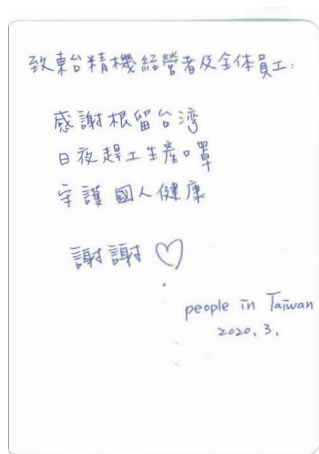 致東台精機経營者及全体員工:
感謝根留台湾
日夜趕工生產口罩
守護國人健康
謝謝♡
people in Taiwan
2020.3.